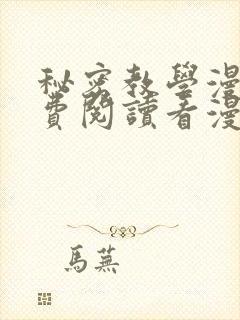 秘密教學漫
費閱讀看漫
馬蕪